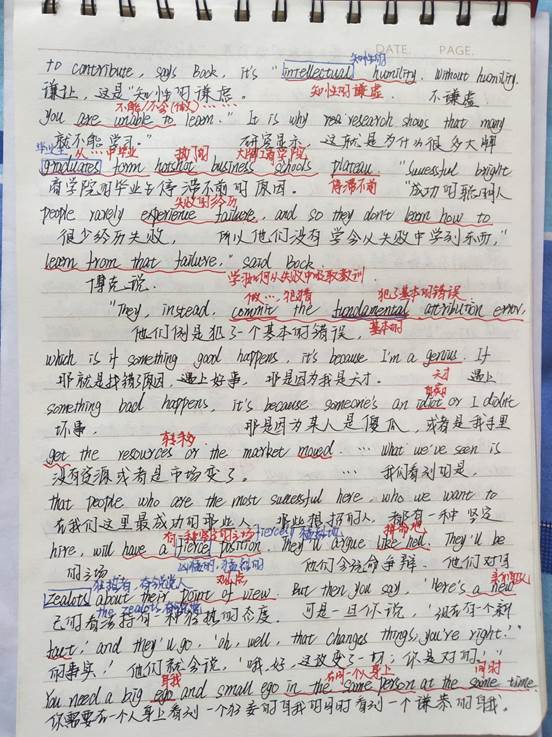 DATE. PAGE.
知性的
to contribute, says Bock, it's "intellectual humility. Without humility,
谦让，这是"知性的谦虚。 知性的谦虚 不谦虚
不能/不会(做)……
you are unable to learn." It is why research shows that many
就不能学习。" 研究显示，这就是为什么很多大牌
毕业生 从……中毕业 热门的 大牌工商学院
graduates form hotshot business schools plateau. "Successful bright
商学院的毕业生停滞不前的原因。 停滞不前 "成功的聪明人
失败的经历
people rarely experience failure, and so they don't learn how to
很少经历失败， 所以他们没有学会从失败中学到东西，"
learn from that failure," said Bock.
博克说. 学习如何从失败中吸取教训
做…犯错 犯了基本的错误
"They, instead, commit the fundamental attribution error,
他们倒是犯了一个基本的错误， 基本的
which is if something good happens, it's because I'm a genius. If
那就是找错了原因，遇上好事，那是因为我是天才. 天才 遇上
something bad happens, it's because someone's an idiot or I didn't
坏事， 那是因为某人是傻瓜， 或者是我手里
转移
get the resources or the market moved. … what we've seen is
没有资源或者是市场变了。 … 我们看到的是，
that people who are the most successful here, who we want to
在我们这里最成功的那些人， 那些想招的人，都有一种坚定
hire, will have a fierce position. They'll argue like hell. They'll be
的立场 他们会拼命争辩. 他们对自
观点
zealots about their point of view. But then you say, 'Here's a new
己的看法持有一种狂热的态度. 可是一旦你说，'这有个新
fact,' and they'll go, 'oh, well, that changes things, you're right.'"
的事实，'他们就会说，'哦，好，这改变了一切，你是对的!'"
自我 在同一个人身上 同时
You need a big ego and small ego in the same person at the same time.
你需要在一个人身上看到一个好委的自我的同时看到一个谦恭的自我。